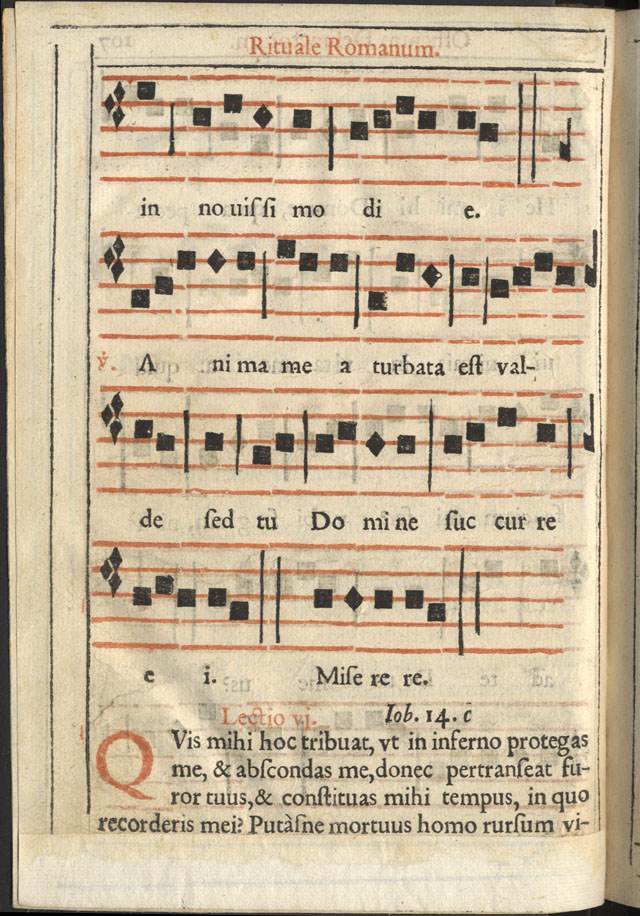 Rituale Romanum.
in nouiſſi mo di e.
℣. A ni ma me a turbata eſt val-
de ſed tu Do mi ne ſuc cur re
e i. Miſe re re.
Lectio vj. Iob. 14. c
QVis mihi hoc tribuat, vt in inferno protegas
me, & abſcondas me, donec pertranſeat fu-
ror tuus, & conſtituas mihi tempus, in quo
recorderis mei? Putàſne mortuus homo rurſum vi-